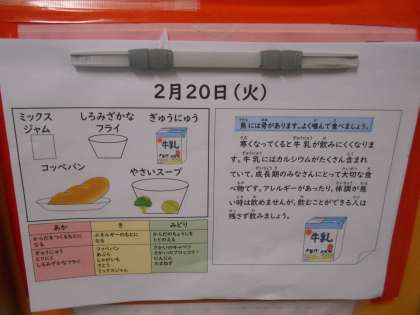 2月20日(火)
ミックス
ジャム
しろみざかな
フライ
ぎゅうにゅう
牛乳
コッペパン
やさいスープ
あか
き
みどり
からだをつくるもとに
なる
エネルギーのもとに
なる
からだのちょうしを
ととのえる
ぎゅうにゅう
とりにく
しろみざかなフライ
コッペパン
あぶら
じゃがいも
さとう
ミックスジャム
にんじん
たまねぎ
魚には骨があります。よく噛んで食べましょう。
寒くなってくると牛乳が飲みにくくなりま
す。牛乳にはカルシウムがたくさん含まれ
ていて、成長期のみなさんにとって大切な食
べ物です。アレルギーがあったり、体調が悪
い時は飲めませんが、飲むことができる人は
残さず飲みましょう。
牛乳